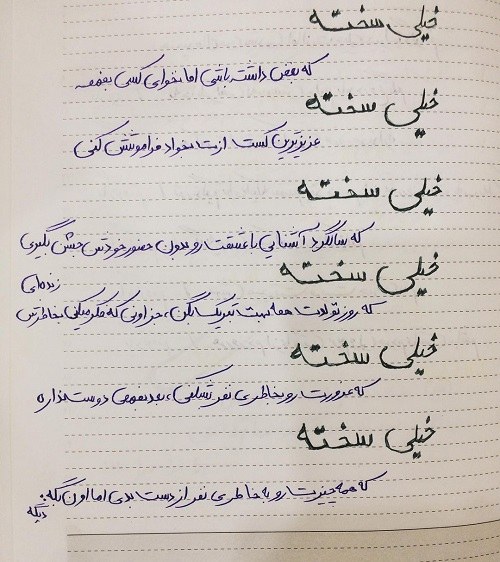 خیلی سخته
که بغض داشته باشی اما نخوای کسی بفهمه
خیلی سخته
عزیزترین کست ازت بخواد فراموشش کنی
خیلی سخته
که سالگرد آشنایی با عشقت رو بدون حضور خودش جشن بگیری
خیلی سخته
که روز تولدت همه بهت تبریک بگن، جز اونی که فکر میکنی بخاطرش زنده‌ای
خیلی سخته
که غرورت رو بخاطر یه نفر بشکنی، بعد بفهمی دوست نداره
خیلی سخته
که همه چیزت رو به خاطر یه نفر از دست بدی اما اون بگه:
دیگه